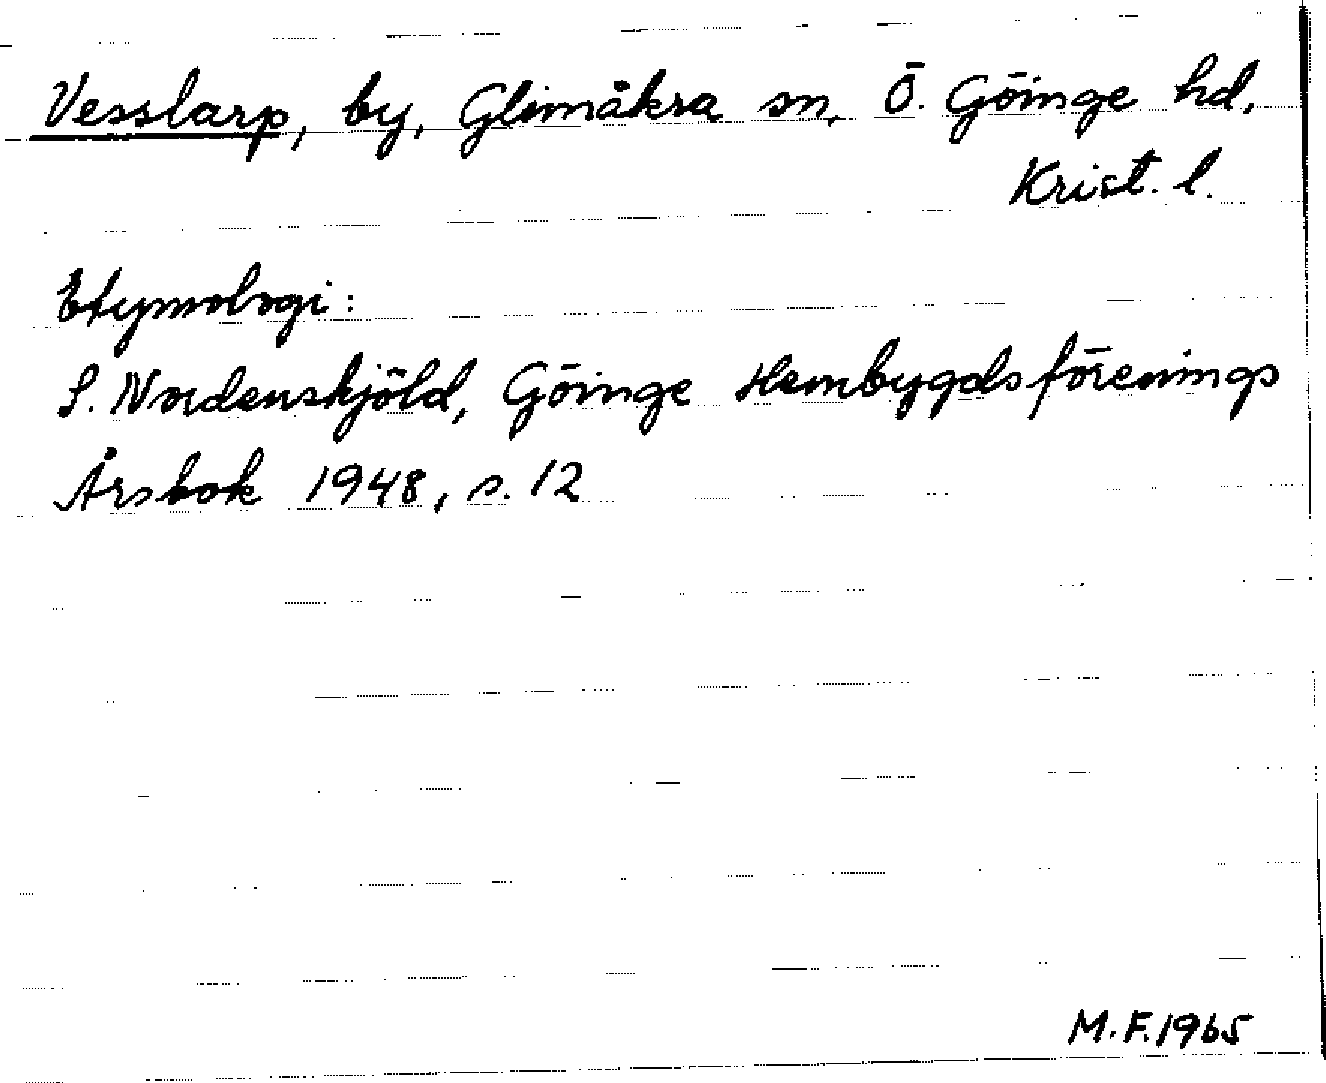 Vesslarp, by, Glimåkra sn, Ö. Göinge hd,
Krist. l.
Etymologi:
S. Nordenskjöld, Göinge Hembygdsförenings
Årsbok 1948, s. 12
M.F. 1965